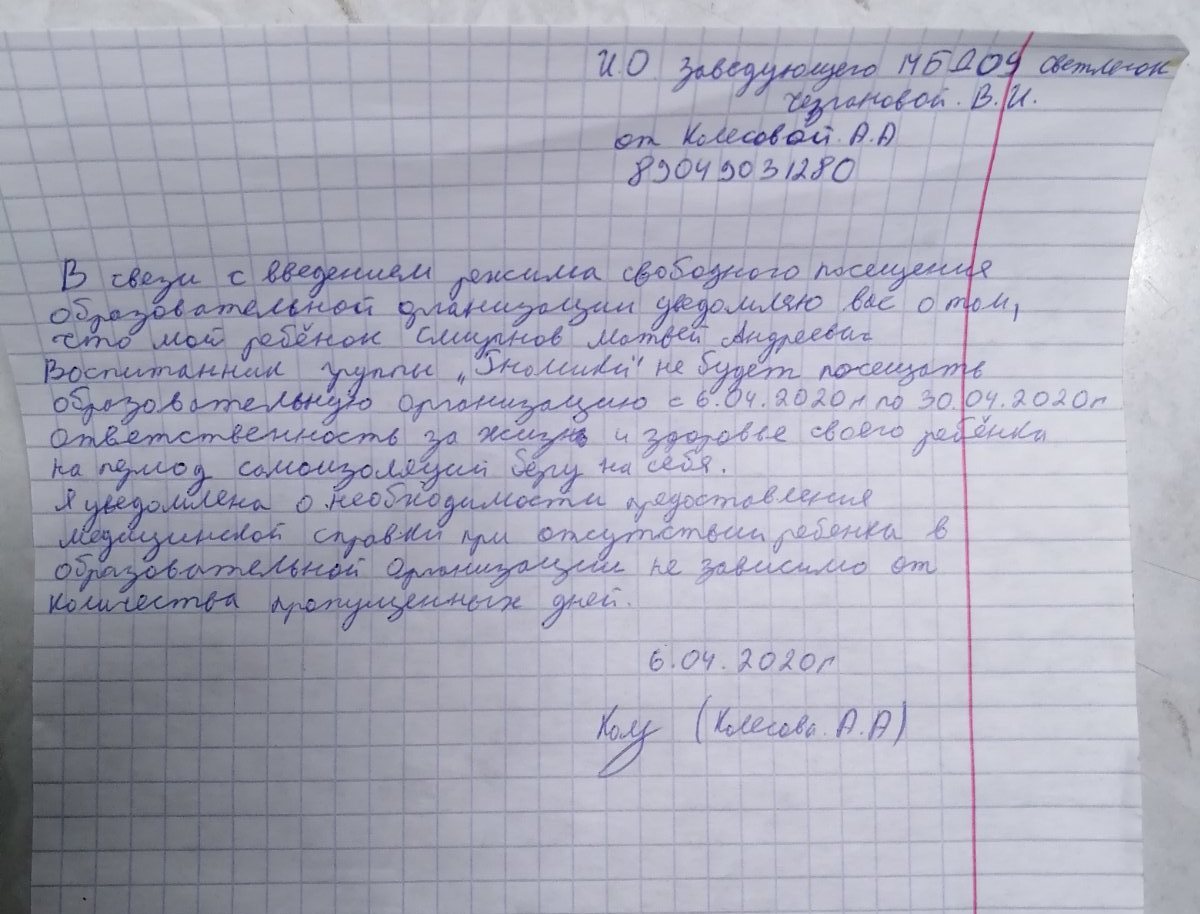 И.О заведующего МБДОУ Светлячок
Чезгановой. В.И.
от Колесовой. А.А
89049031280
В свези с введением режима свободного посещения
образовательной организации уведомляю вас о том,
что мой ребёнок Смирнов Матвей Андреевич
Воспитанник группы „Гномики" не будет посещать
образовательную организацию с 6.04.2020г по 30.04.2020г
ответственность за жизнь и здоровье своего ребёнка
на период самоизоляций беру на себя.
Я уведомлена о необходимости предоставления
медицинской справки при отсутствии ребенка в
образовательной организации не зависимо от
количества пропущенных дней.
6.04.2020г
(Колесова. А.А)